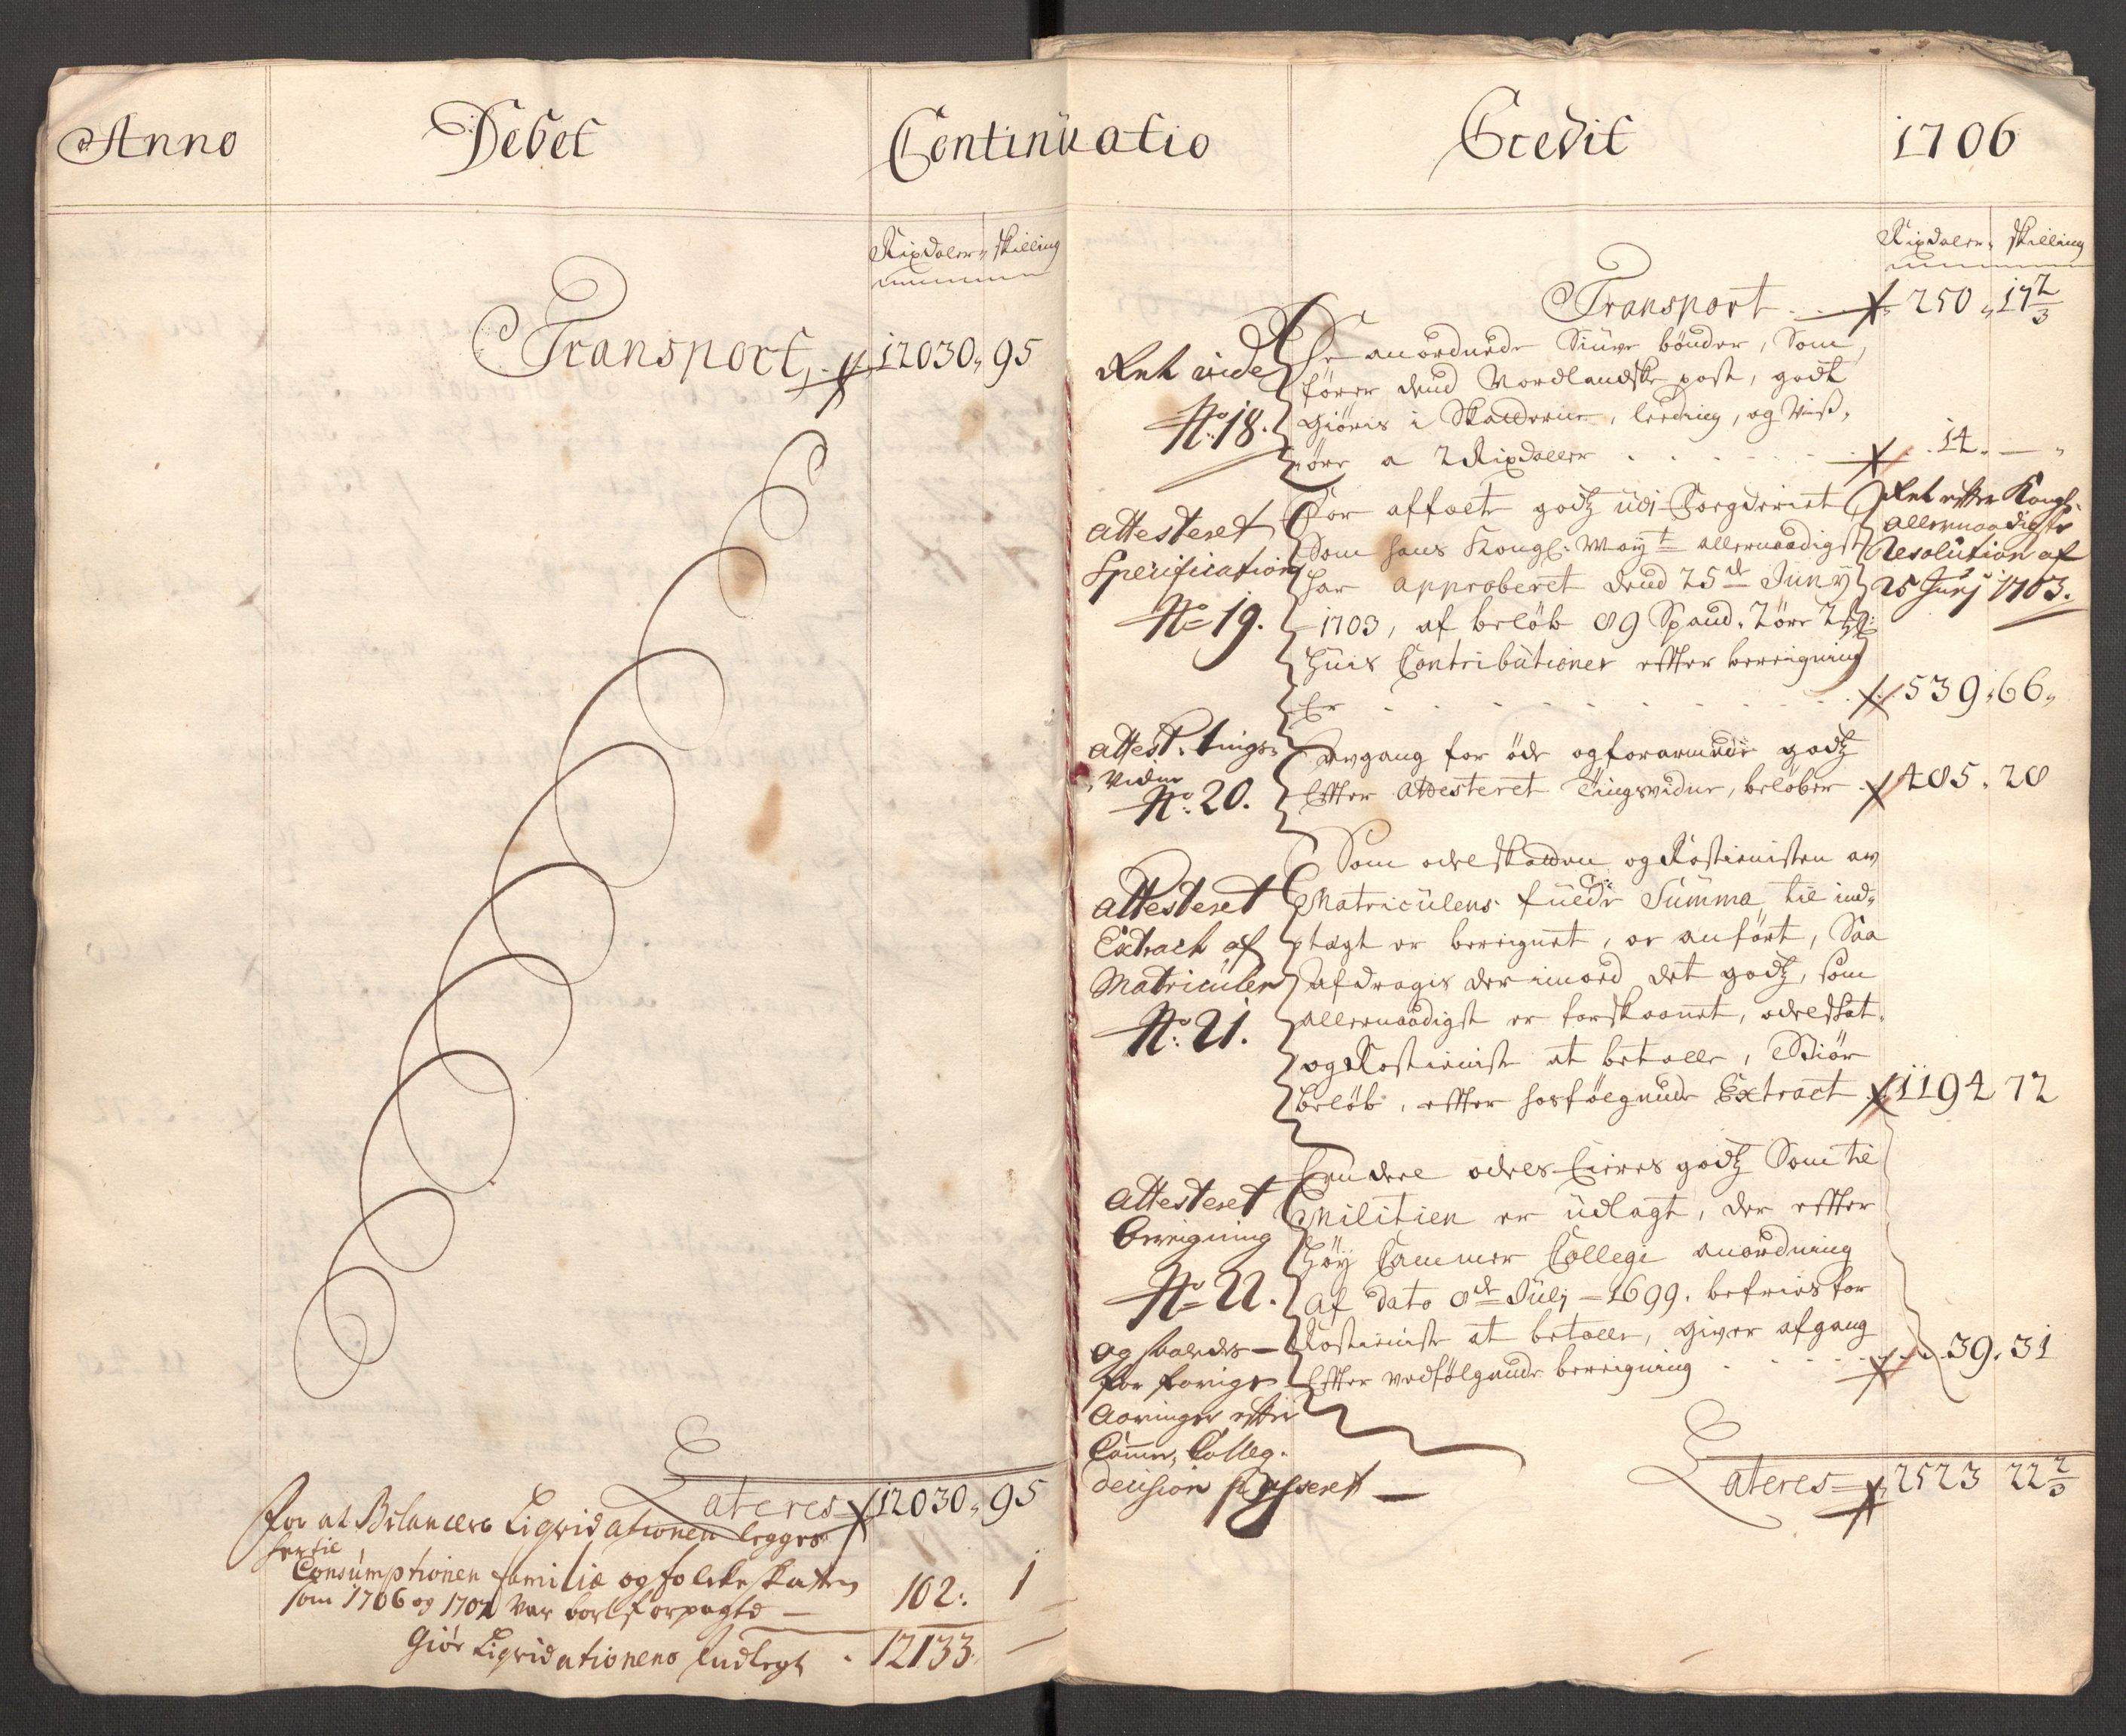 Anno Debet Continuatio Credit 1706
Rixdaler skilling
Transport 12030 95
Lateres 12030 95
For at Balancere Liqvidationen legges
her til
Consumptionen familie og folckeskatten
som 1706 og 1707 var bortforpagtet — 102: 1
Giør Liqvidationens Indtegt 12133 —
Rixdaler skilling
Transport 250 17 2/3
Ret vide
No 18.
De anordnede Siuv bønder, Som
fører dend Nordlandske post, godt
giøris i Skatterne, leeding, og Viß,
øre a 2 Rixdaller 14 —
attesteret
Specification
No 19.
For affælt godtz udi Fogderiet
Som hans Kongl: Mayt allernaadigst
har approberet dend 25de Juny
1703, af beløb 89 Spand 2 øre
huis Contributioner efter beregning
Er 539 66
Ret efter Kongl.
allernaadigste
Resolution af
25 Junj 1703.
attest. tings
vidne
No 20.
Avgang for øde og forarmede godtz
Efter attesteret Tingsvidne, beløber 485 28
attesteret
Extract af
Matriculen
No 21.
Som odelskatten og Rostienisten av
Matriculens fulde Summa til ind,
tægt er beregnet, er anført, Saa
afdragis der imod det godtz, som
allernaadigst er forskaanet, odelskat
og Rostieniste at betalle, Giør
beløb, efter hosfølgende Extract 1194 72
attesteret
beregning
No 22.
og saaledes
for forrige
aaringer efter
Camer Colleg.
decision passeret —
Endeel odels Eieres godtz Som til
Militien er udlagt, der efter
høy Cammer Collegi anordning
af dato 8de Julj 1699. befries for
Rostieniste at betalle, giver afgang
Efter vedfølgende beregning 39 31
Lateres 2523 22 2/3